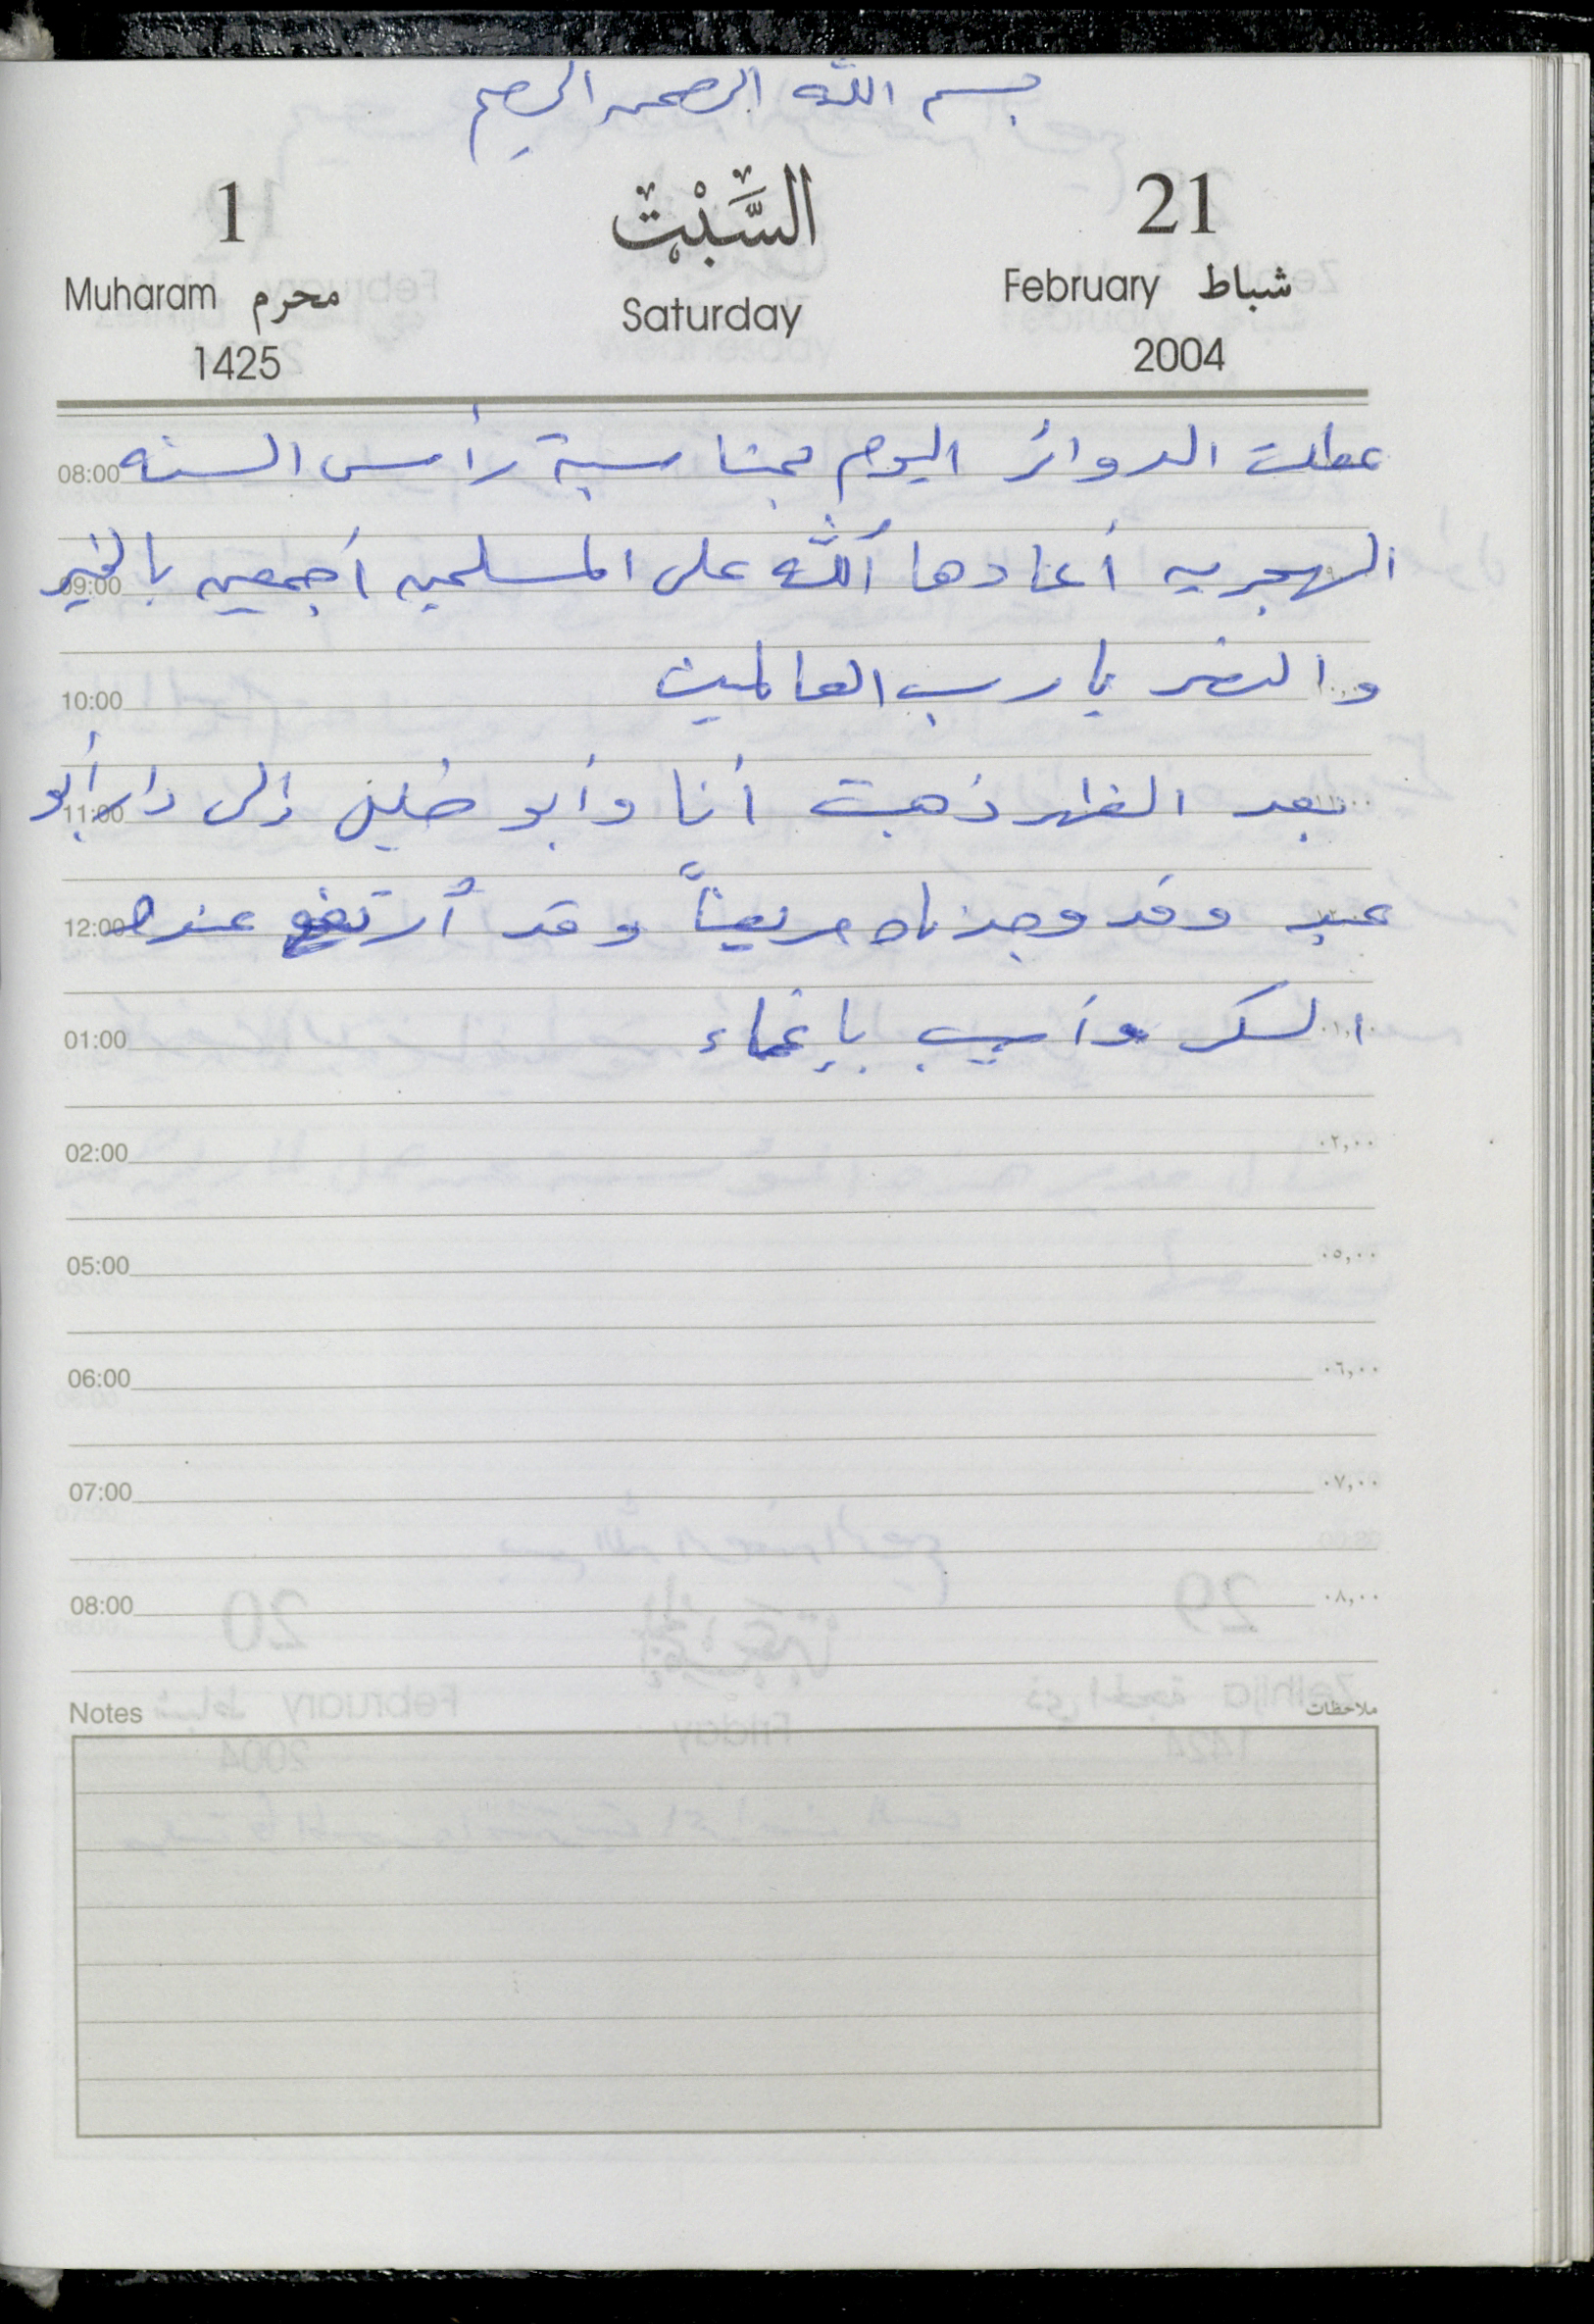 بسم الله الرحمن الرحيم
1 السَّبْت 21
Muharam محرم Saturday February شباط
1425 2004
عطلت الدوائر اليوم بمناسبة رأس السنه 08:00
الهجريه أعادها الله على المسلمين أجمعين بالخير 09:00
والنصر يا رب العالمين 10:00
بعد الظهر ذهبت أنا وأبو خليل إلى دار أبو 11:00
عبد وقد وجدناه مريضاً وقد أرتفع عنده 12:00
السكر وأصيب بإغماء 01:00
02:00 ٠٢,٠٠
05:00 ٠٥,٠٠
06:00 ٠٦,٠٠
07:00 ٠٧,٠٠
08:00 ٠٨,٠٠
Notes ملاحظات